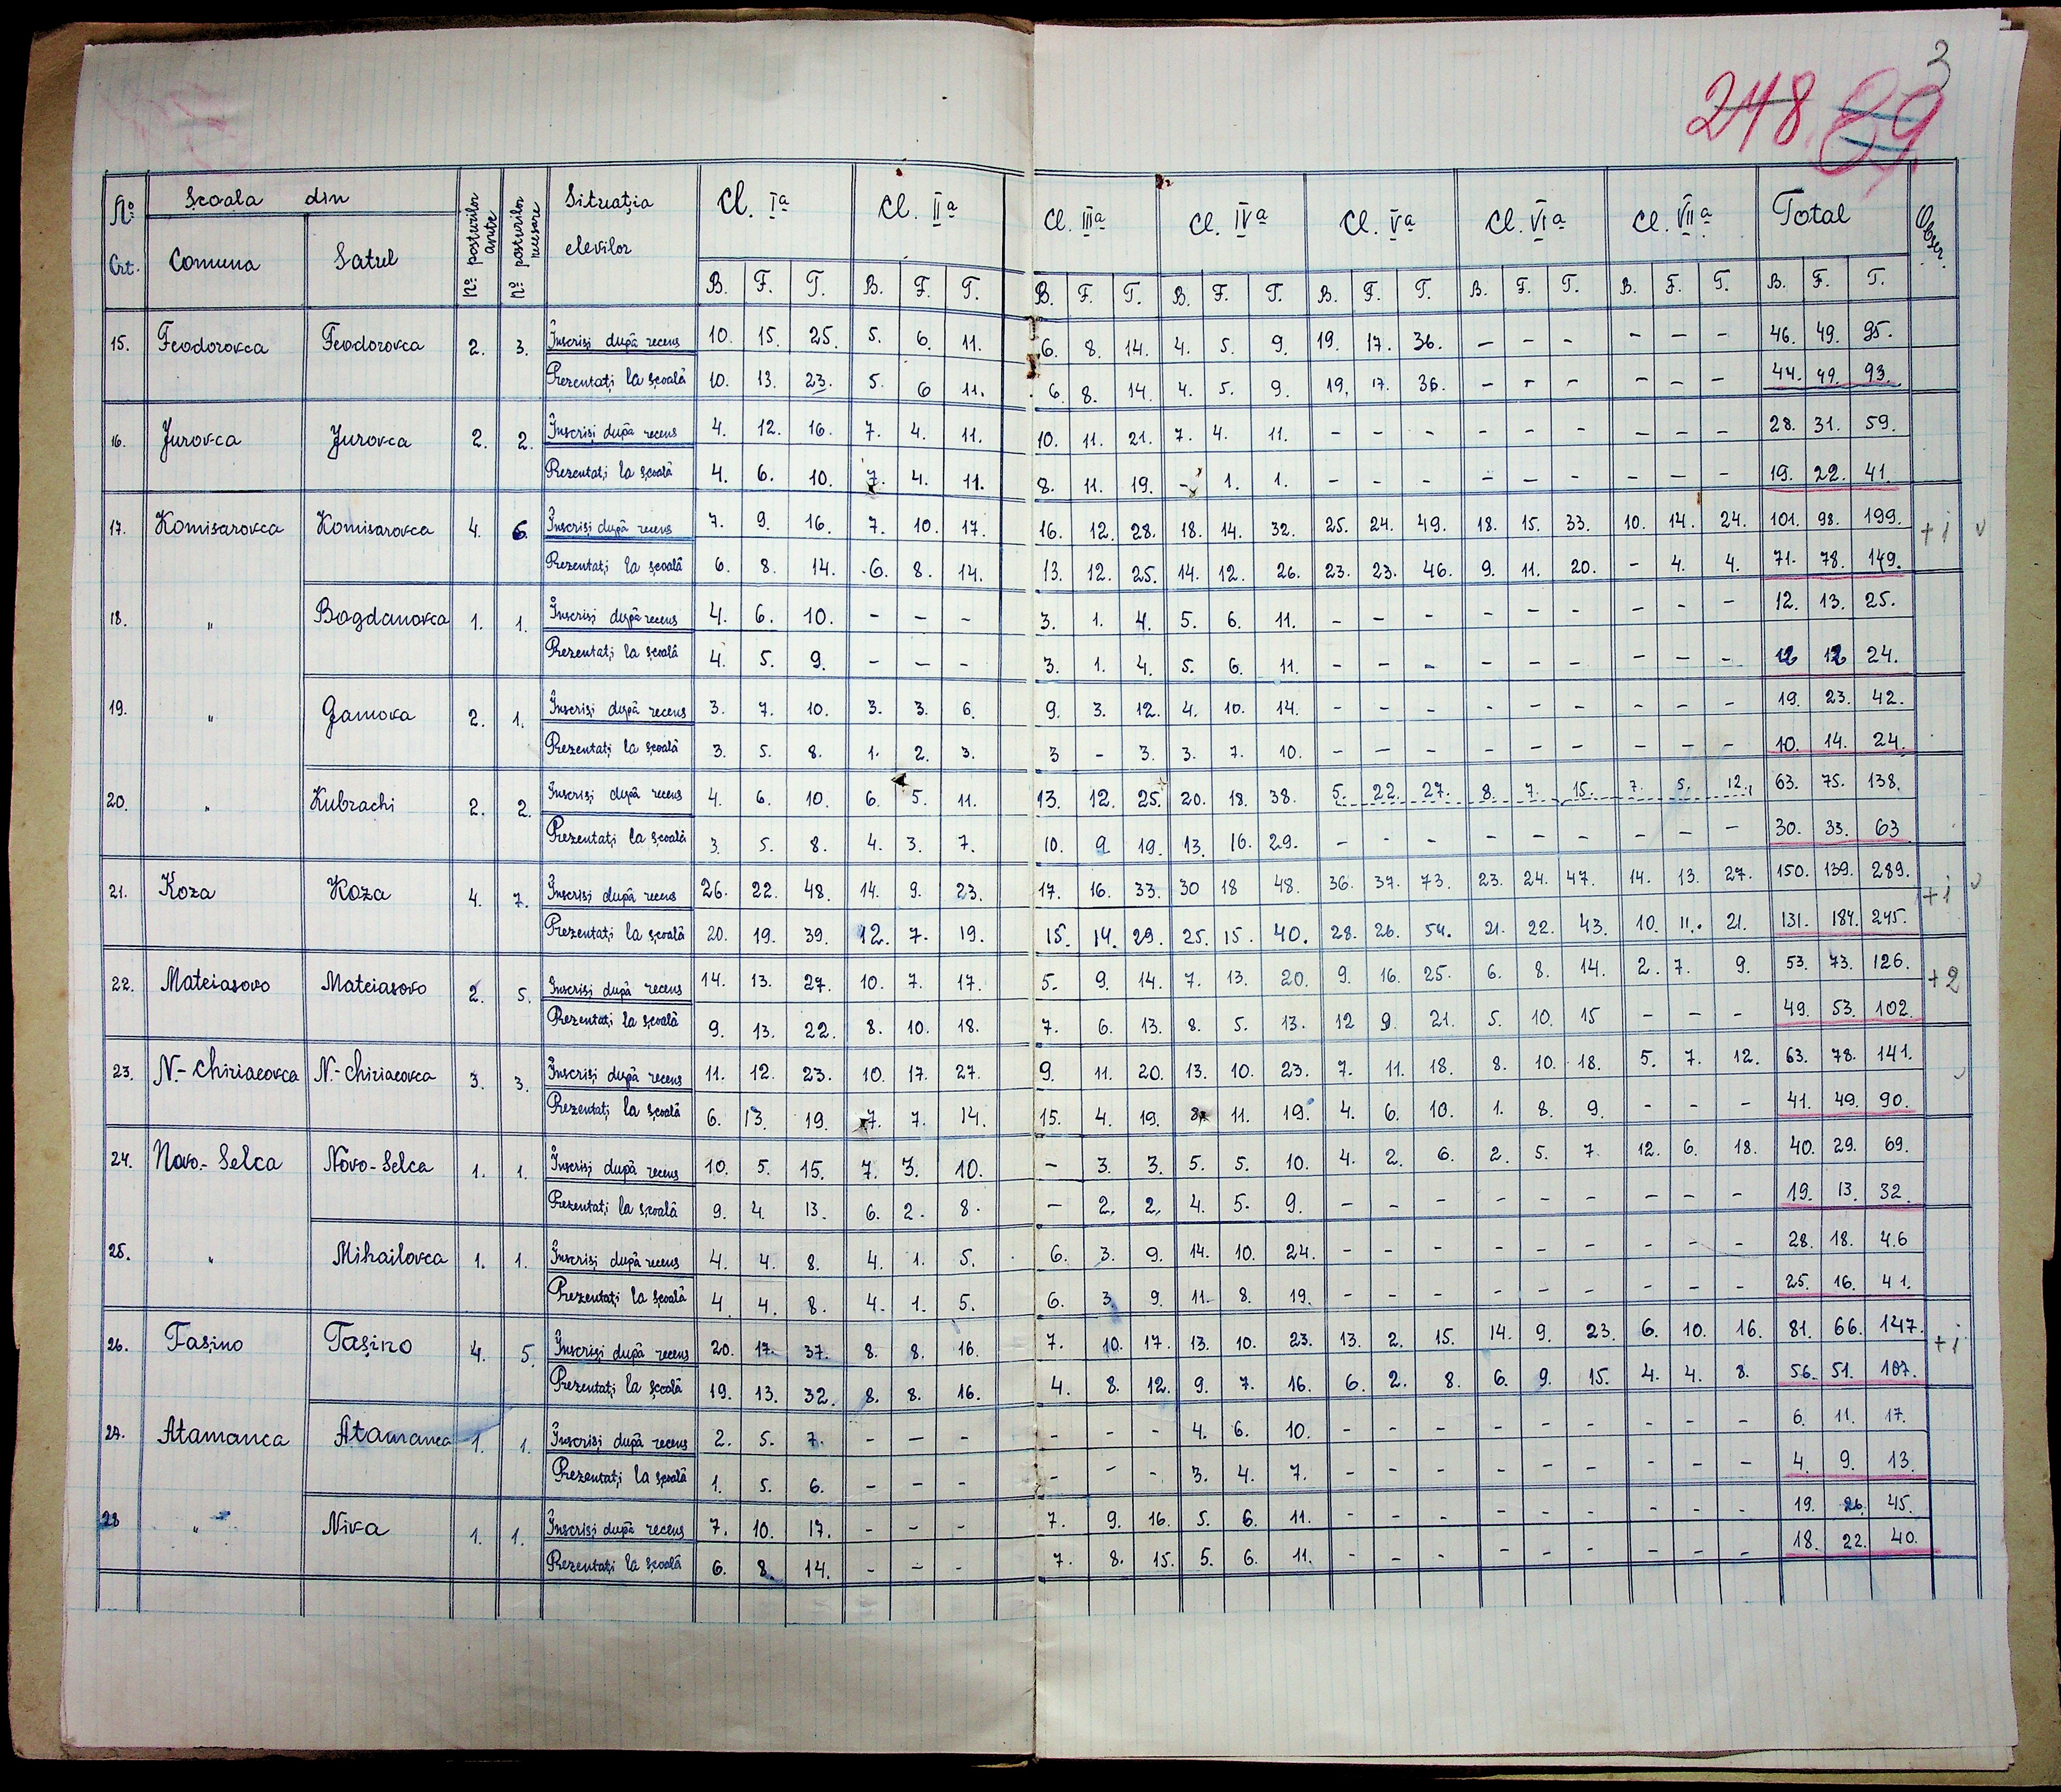 3
248. 89.
No Crt. Școala din No posturilor avute No posturilor necesare Situația elevilor Cl. Iª Cl. IIª Cl. IIIª Cl. IVª Cl. Vª Cl. VIª Cl. VIIª Total Obser.
Comuna Satul B. F. T. B. F. T. B. F. T. B. F. T. B. F. T. B. F. T. B. F. T. B. F. T.
15. Feodorovca Feodorovca 2. 3. Înscriși după recens 10. 15. 25. 5. 6. 11. 6. 8. 14. 4. 5. 9. 19. 17. 36. - - - - - - 46. 49. 95.
Prezentați la școală 10. 13. 23. 5. 6 11. 6. 8. 14. 4. 5. 9. 19. 17. 36. - - - - - - 44. 49. 93.
16. Jurovca Jurovca 2. 2. Înscriși după recens 4. 12. 16. 7. 4. 11. 10. 11. 21. 7. 4. 11. - - - - - - - - - 28. 31. 59.
Prezentați la școală 4. 6. 10. 7. 4. 11. 8. 11. 19. - 1. 1. - - - - - - - - - 19. 22. 41.
17. Komisarovca Komisarovca 4. 6. Înscriși după recens 7. 9. 16. 7. 10. 17. 16. 12. 28. 18. 14. 32. 25. 24. 49. 18. 15. 33. 10. 14. 24. 101. 98. 199. +1 v
Prezentați la școală 6. 8. 14. 6. 8. 14. 13. 12. 25. 14. 12. 26. 23. 23. 46. 9. 11. 20. - 4. 4. 71. 78. 149.
18. " Bogdanovca 1. 1. Înscriși după recens 4. 6. 10. - - - 3. 1. 4. 5. 6. 11. - - - - - - - - - 12. 13. 25.
Prezentați la școală 4. 5. 9. - - - 3. 1. 4. 5. 6. 11. - - - - - - - - - 12 12 24.
19. " Gamova 2. 1. Înscriși după recens 3. 7. 10. 3. 3. 6. 9. 3. 12. 4. 10. 14. - - - - - - - - - 19. 23. 42.
Prezentați la școală 3. 5. 8. 1. 2. 3. 3 - 3. 3. 7. 10. - - - - - - - - - 10. 14. 24.
20. " Kubrachi 2. 2. Înscriși după recens 4. 6. 10. 6. 5. 11. 13. 12. 25. 20. 18. 38. 5. 22. 27. 8. 7. 15. 7. 5. 12. 63. 75. 138.
Prezentați la școală 3. 5. 8. 4. 3. 7. 10. 9 19. 13. 16. 29. - - - - - - - - - 30. 33. 63
21. Koza Koza 4. 7. Înscriși după recens 26. 22. 48. 14. 9. 23. 17. 16. 33. 30 18 48. 36. 37. 73. 23. 24. 47. 14. 13. 27. 150. 139. 289. +1 v
Prezentați la școală 20. 19. 39. 12. 7. 19. 15. 14. 29. 25. 15. 40. 28. 26. 54. 21. 22. 43. 10. 11. 21. 131. 184. 245.
22. Mateiasovo Mateiasovo 2. 5. Înscriși după recens 14. 13. 27. 10. 7. 17. 5. 9. 14. 7. 13. 20. 9. 16. 25. 6. 8. 14. 2. 7. 9. 53. 73. 126. +2
Prezentați la școală 9. 13. 22. 8. 10. 18. 7. 6. 13. 8. 5. 13. 12 9. 21. 5. 10. 15 - - - 49. 53. 102.
23. N.-Chiriacovca N.-Chiriacovca 3. 3. Înscriși după recens 11. 12. 23. 10. 17. 27. 9. 11. 20. 13. 10. 23. 7. 11. 18. 8. 10. 18. 5. 7. 12. 63. 78. 141. v
Prezentați la școală 6. 13. 19. 7. 7. 14. 15. 4. 19. 8. 11. 19. 4. 6. 10. 1. 8. 9. - - - 41. 49. 90.
24. Novo-Selca Novo-Selca 1. 1. Înscriși după recens 10. 5. 15. 7. 3. 10. - 3. 3. 5. 5. 10. 4. 2. 6. 2. 5. 7. 12. 6. 18. 40. 29. 69.
Prezentați la școală 9. 4. 13. 6. 2. 8. - 2. 2. 4. 5. 9. - - - - - - - - - 19. 13. 32.
25. " Mihailovca 1. 1. Înscriși după recens 4. 4. 8. 4. 1. 5. 6. 3. 9. 14. 10. 24. - - - - - - - - - 28. 18. 46
Prezentați la școală 4. 4. 8. 4. 1. 5. 6. 3. 9. 11. 8. 19. - - - - - - - - - 25. 16. 41.
26. Tașino Tașino 4. 5. Înscriși după recens 20. 17. 37. 8. 8. 16. 7. 10. 17. 13. 10. 23. 13. 2. 15. 14. 9. 23. 6. 10. 16. 81. 66. 147. +1
Prezentați la școală 19. 13. 32. 8. 8. 16. 4. 8. 12. 9. 7. 16. 6. 2. 8. 6. 9. 15. 4. 4. 8. 56. 51. 107.
27. Atamanca Atamanca 1. 1. Înscriși după recens 2. 5. 7. - - - - - - 4. 6. 10. - - - - - - - - - 6. 11. 17.
Prezentați la școală 1. 5. 6. - - - - - - 3. 4. 7. - - - - - - - - - 4. 9. 13.
28 " Niva 1. 1. Înscriși după recens 7. 10. 17. - - - 7. 9. 16. 5. 6. 11. - - - - - - - - - 19. 26. 45.
Prezentați la școală 6. 8. 14. - - - 7. 8. 15. 5. 6. 11. - - - - - - - - - 18. 22. 40.